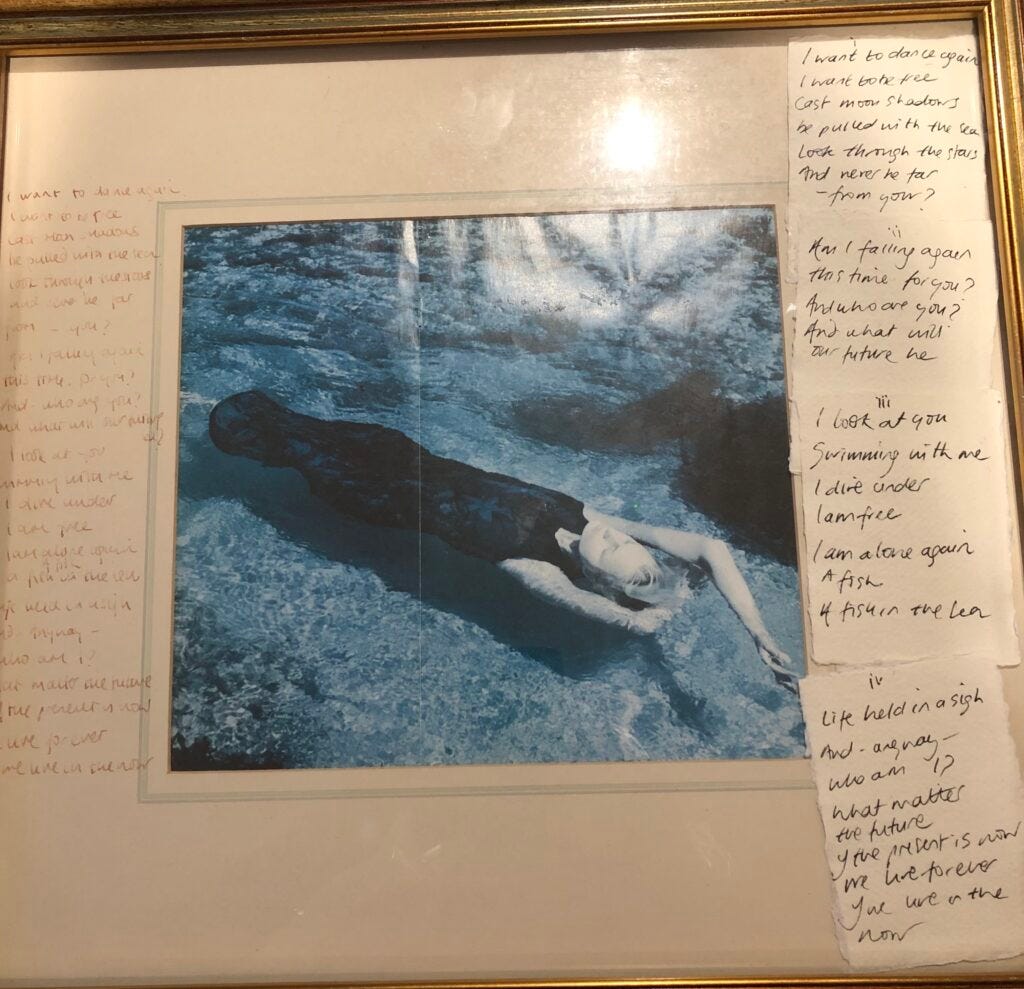 I want to dance again
I want to be free
Cast moon shadows
be pulled with the sea
Look through the stars
And never be far
- from you?
ii
Am I falling again
this time for you?
And who are you?
And what will
our future be
iii
I look at you
Swimming with me
I dive under
I am free
I am alone again
A fish
A fish in the
iv
Life held in a sigh
And - anyway -
who am I?
what matter
the future
if the present is now
we live forever
live in the
now
I want to dance again
I want to be free
cast moon shadows
be pulled with the sea
look through the stars
and be far
from - you?
falling again
this time
And - who are you?
and what will our future
I look at you
swimming with me
I dive under
I am free
I am alone again
a fish in the
held in a sigh
anyway -
who am I?
matter the future
the present is now
live forever
we live in the now